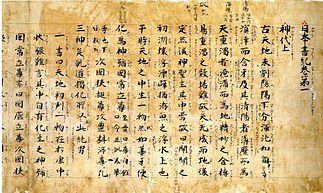 日本書紀卷第一
神代上
古天地未剖陰陽不分渾沌如雞子
溟涬而含牙及其清陽者薄靡而為
天重濁者淹滯而為地精妙之合搏
易重濁之凝竭難故天先成而地後
定然後神聖生其中焉故曰開闢之
初洲壤浮漂譬猶游魚之浮水上也
于時天地之中生一物狀如葦牙便
化為神號國常立尊
次國狹槌尊次豐斟渟尊凡
三神矣乾道獨化所以成此純男
一書曰天地初判一物在於虛中
狀貌難言其中自有化生之神號
國常立尊亦曰國底立尊次國狹